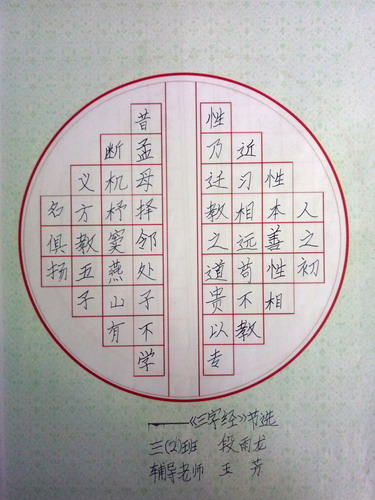 人之初
性本善性相
近习相远苟不教
性乃迁教之道贵以专
昔孟母择邻处子不学
断机杼窦燕山有
义方教五子
名俱扬
——《三字经》节选
三(2)班 段雨龙
辅导老师 王芳